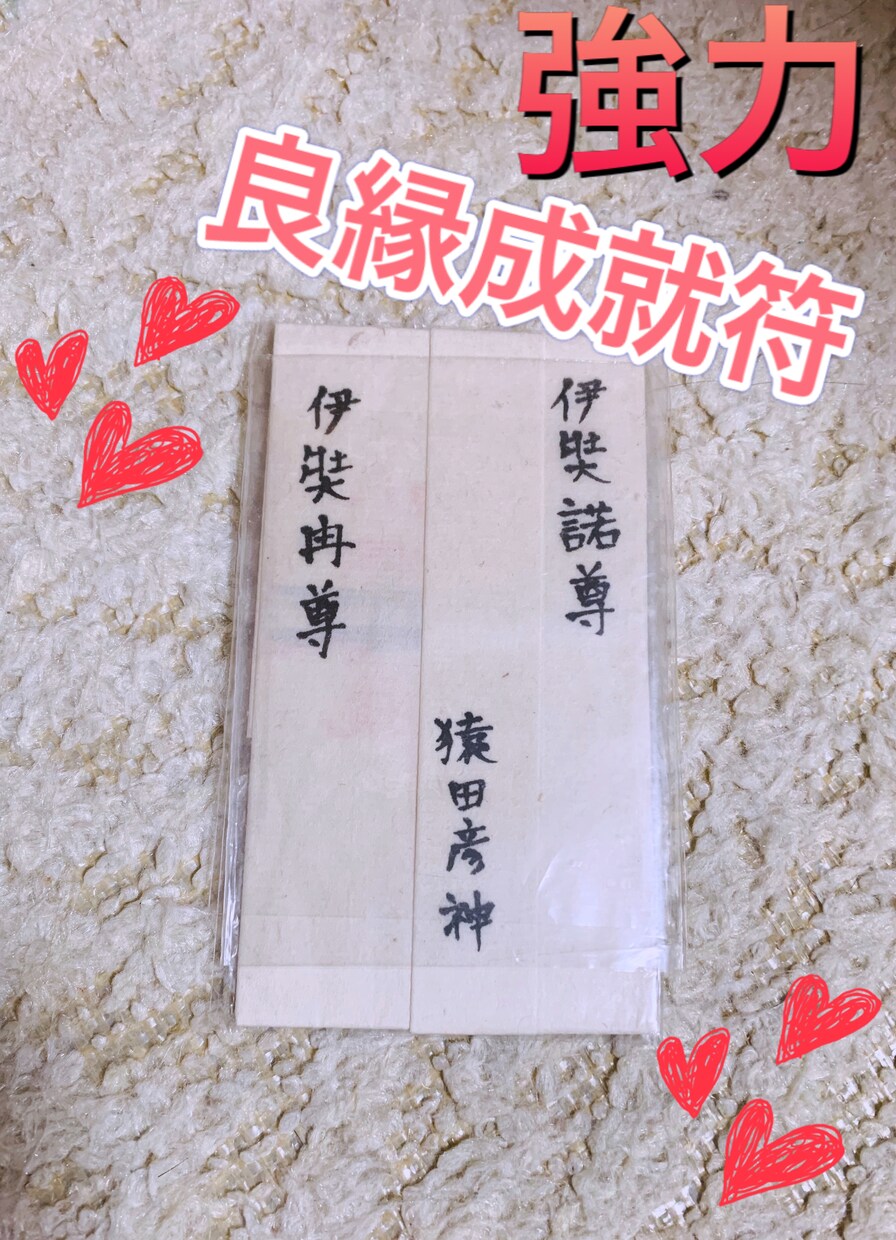 強力
良縁成就符
伊奘諾尊
猿田彦神
伊奘冉尊